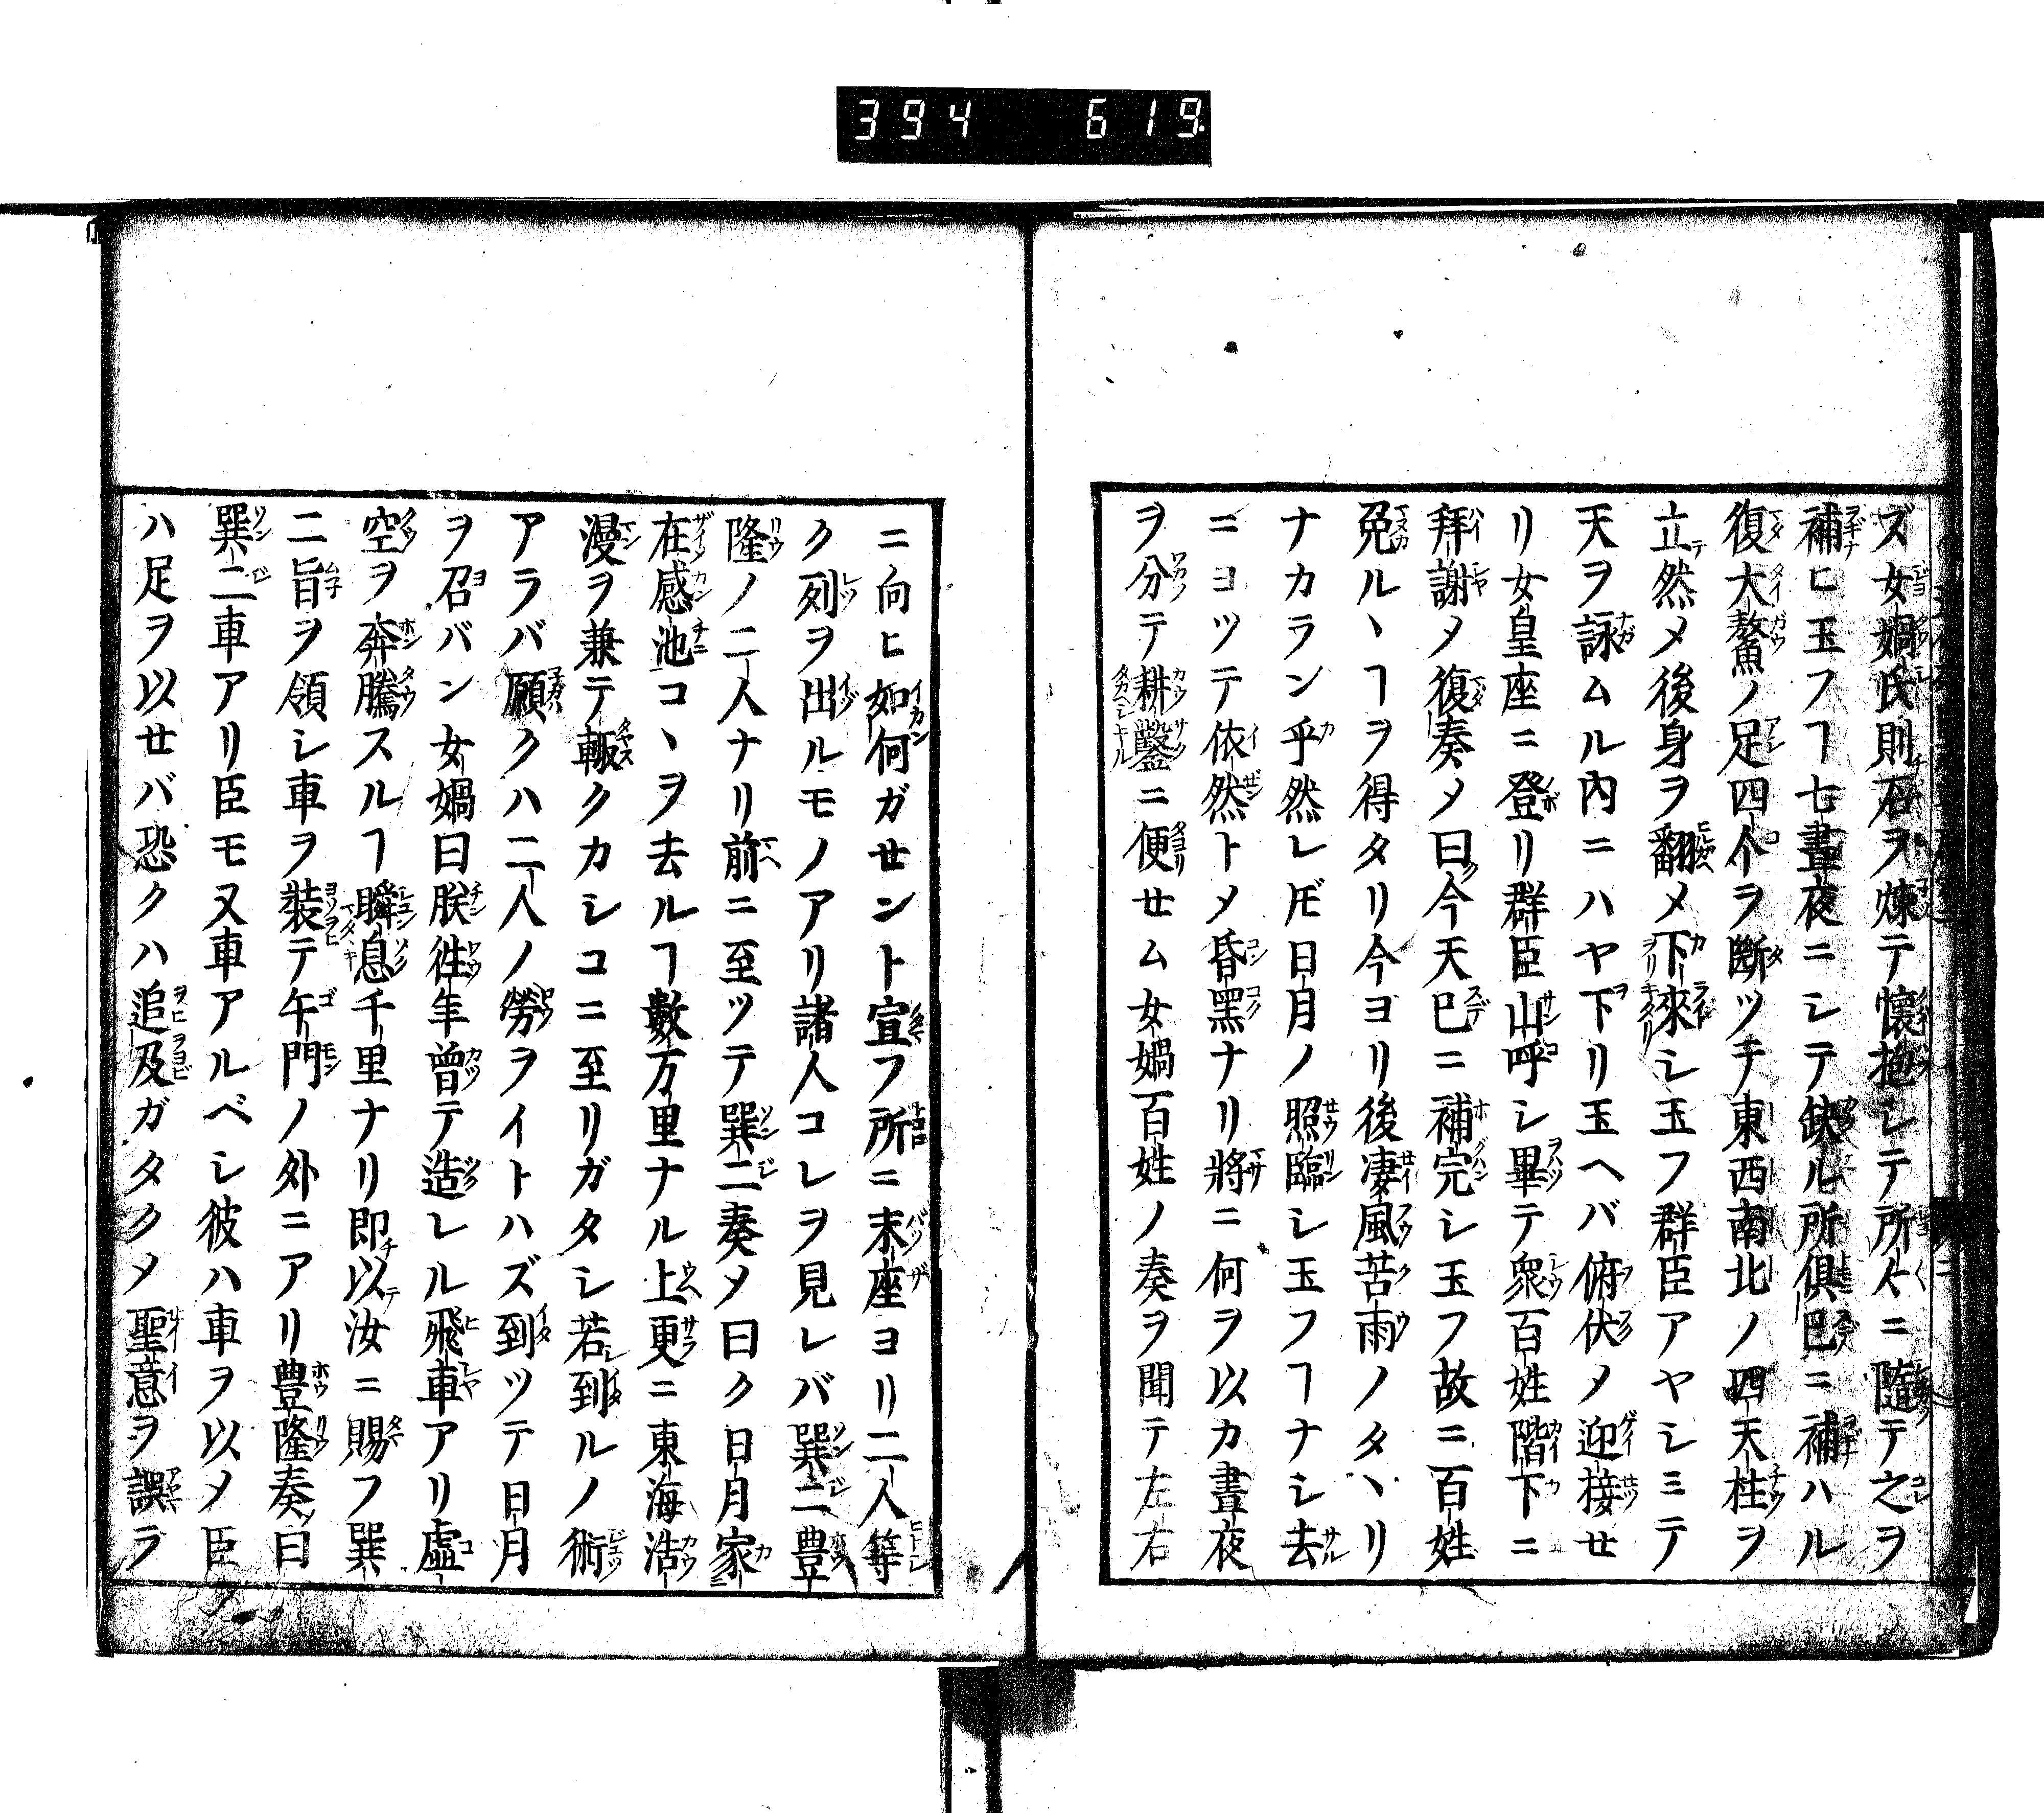 394 619
ズ女媧氏則石ヲ煉テ懐抱シテ所々ニ隨テ之ヲ
補ヒ玉フヿ七晝夜ニシテ缺ル所俱巳ニ補ハル
復大鰲ノ足四个ヲ斷ツテ東西南北ノ四天柱ヲ
立然メ後身ヲ翻メ下來シ玉フ群臣アヤシミテ
天ヲ詠ムル內ニハヤ下リ玉ヘバ俯伏メ迎接セ
リ女皇座ニ登リ群臣山呼シ畢テ衆百姓階下ニ
拜謝メ復奏メ曰今天巳ニ補完シ玉フ故ニ百姓
免ルヽヿヲ得タリ今ヨリ後凄風苦雨ノタヽリ
ナカラン乎然レ𪜈日月ノ照臨シ玉フヿナシ去
ニヨツテ依然トメ昏黑ナリ將ニ何ヲ以カ晝夜
ヲ分テ耕鑿ニ便セム女媧百姓ノ奏ヲ聞テ左右
ニ向ヒ如何ガセント宣フ所ニ末座ヨリ二人等
ク列ヲ出ルモノアリ諸人コレヲ見レバ巽二豊
隆ノ二人ナリ前ニ至ツテ巽二奏メ曰ク日月家
在感池コヽヲ去ルヿ數万里ナル上更ニ東海浩
漫ヲ兼テ輙クカシコニ至リガタシ若到ルノ術
アラバ願クハ二人ノ勞ヲイトハズ到ツテ日月
ヲ召バン女媧曰朕徃年曾テ造レル飛車アリ虛
空ヲ奔騰スルヿ瞬息千里ナリ即以汝ニ賜フ巽
二旨ヲ領シ車ヲ装テ午門ノ外ニアリ豊隆奏曰
巽二車アリ臣モ又車アルベシ彼ハ車ヲ以メ臣
ハ足ヲ以セバ恐クハ追及ガタクメ聖意ヲ誤ラ